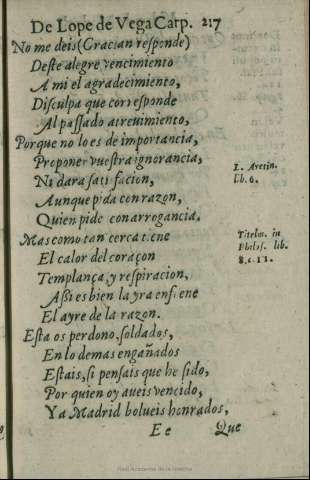 De Lope de Vega Carp. 217
No me deis (Gracian responde)
Deste alegre vencimiento
A mi el agradecimiento,
Disculpa que corresponde
Al passado atreuimiento,
Porque no lo es de importancia,
Proponer vuestra ignorancia,
Ni dara satisfacion,
Aunque pida con razon,
Quien pide con arrogancia.
Mas como tan cerca tiene
El calor del coraçon
Templança, y respiracion,
Assi es bien la yra enfrene
El ayre de la razon.
Esta os perdono, soldados,
En lo demas engañados
Estais, si pensais que he sido,
Por quien oy aueis vencido,
Ya Madrid bolueis honrados,
Ee Que
I. Aretin.
lib. 6.
Titelm. in
Philos. lib.
8. c. 11.
Real Academia de la Historia